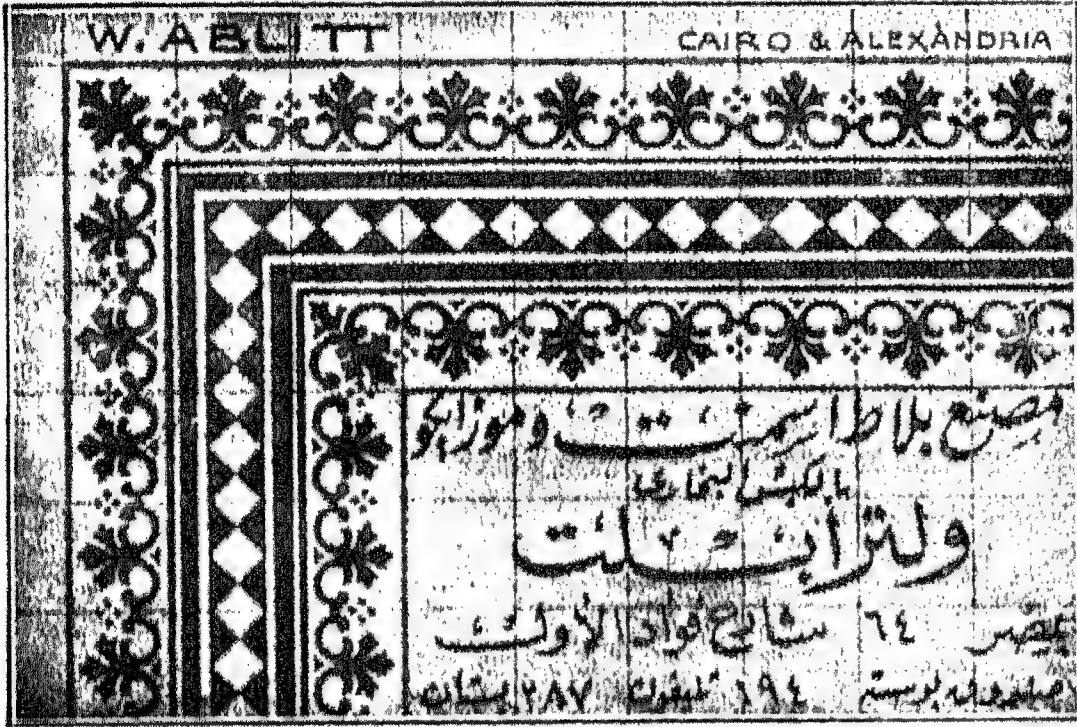 W. ABLITT CAIRO & ALEXANDRIA
مصنع بلاط اسمنت وموزايكو
بالكبس البخارى
ولتر ابـلت
بمصر ٦٤ شارع فواد الأول
صندوق بوسته ١٩٤ تليفون ٢٨٧ بستان